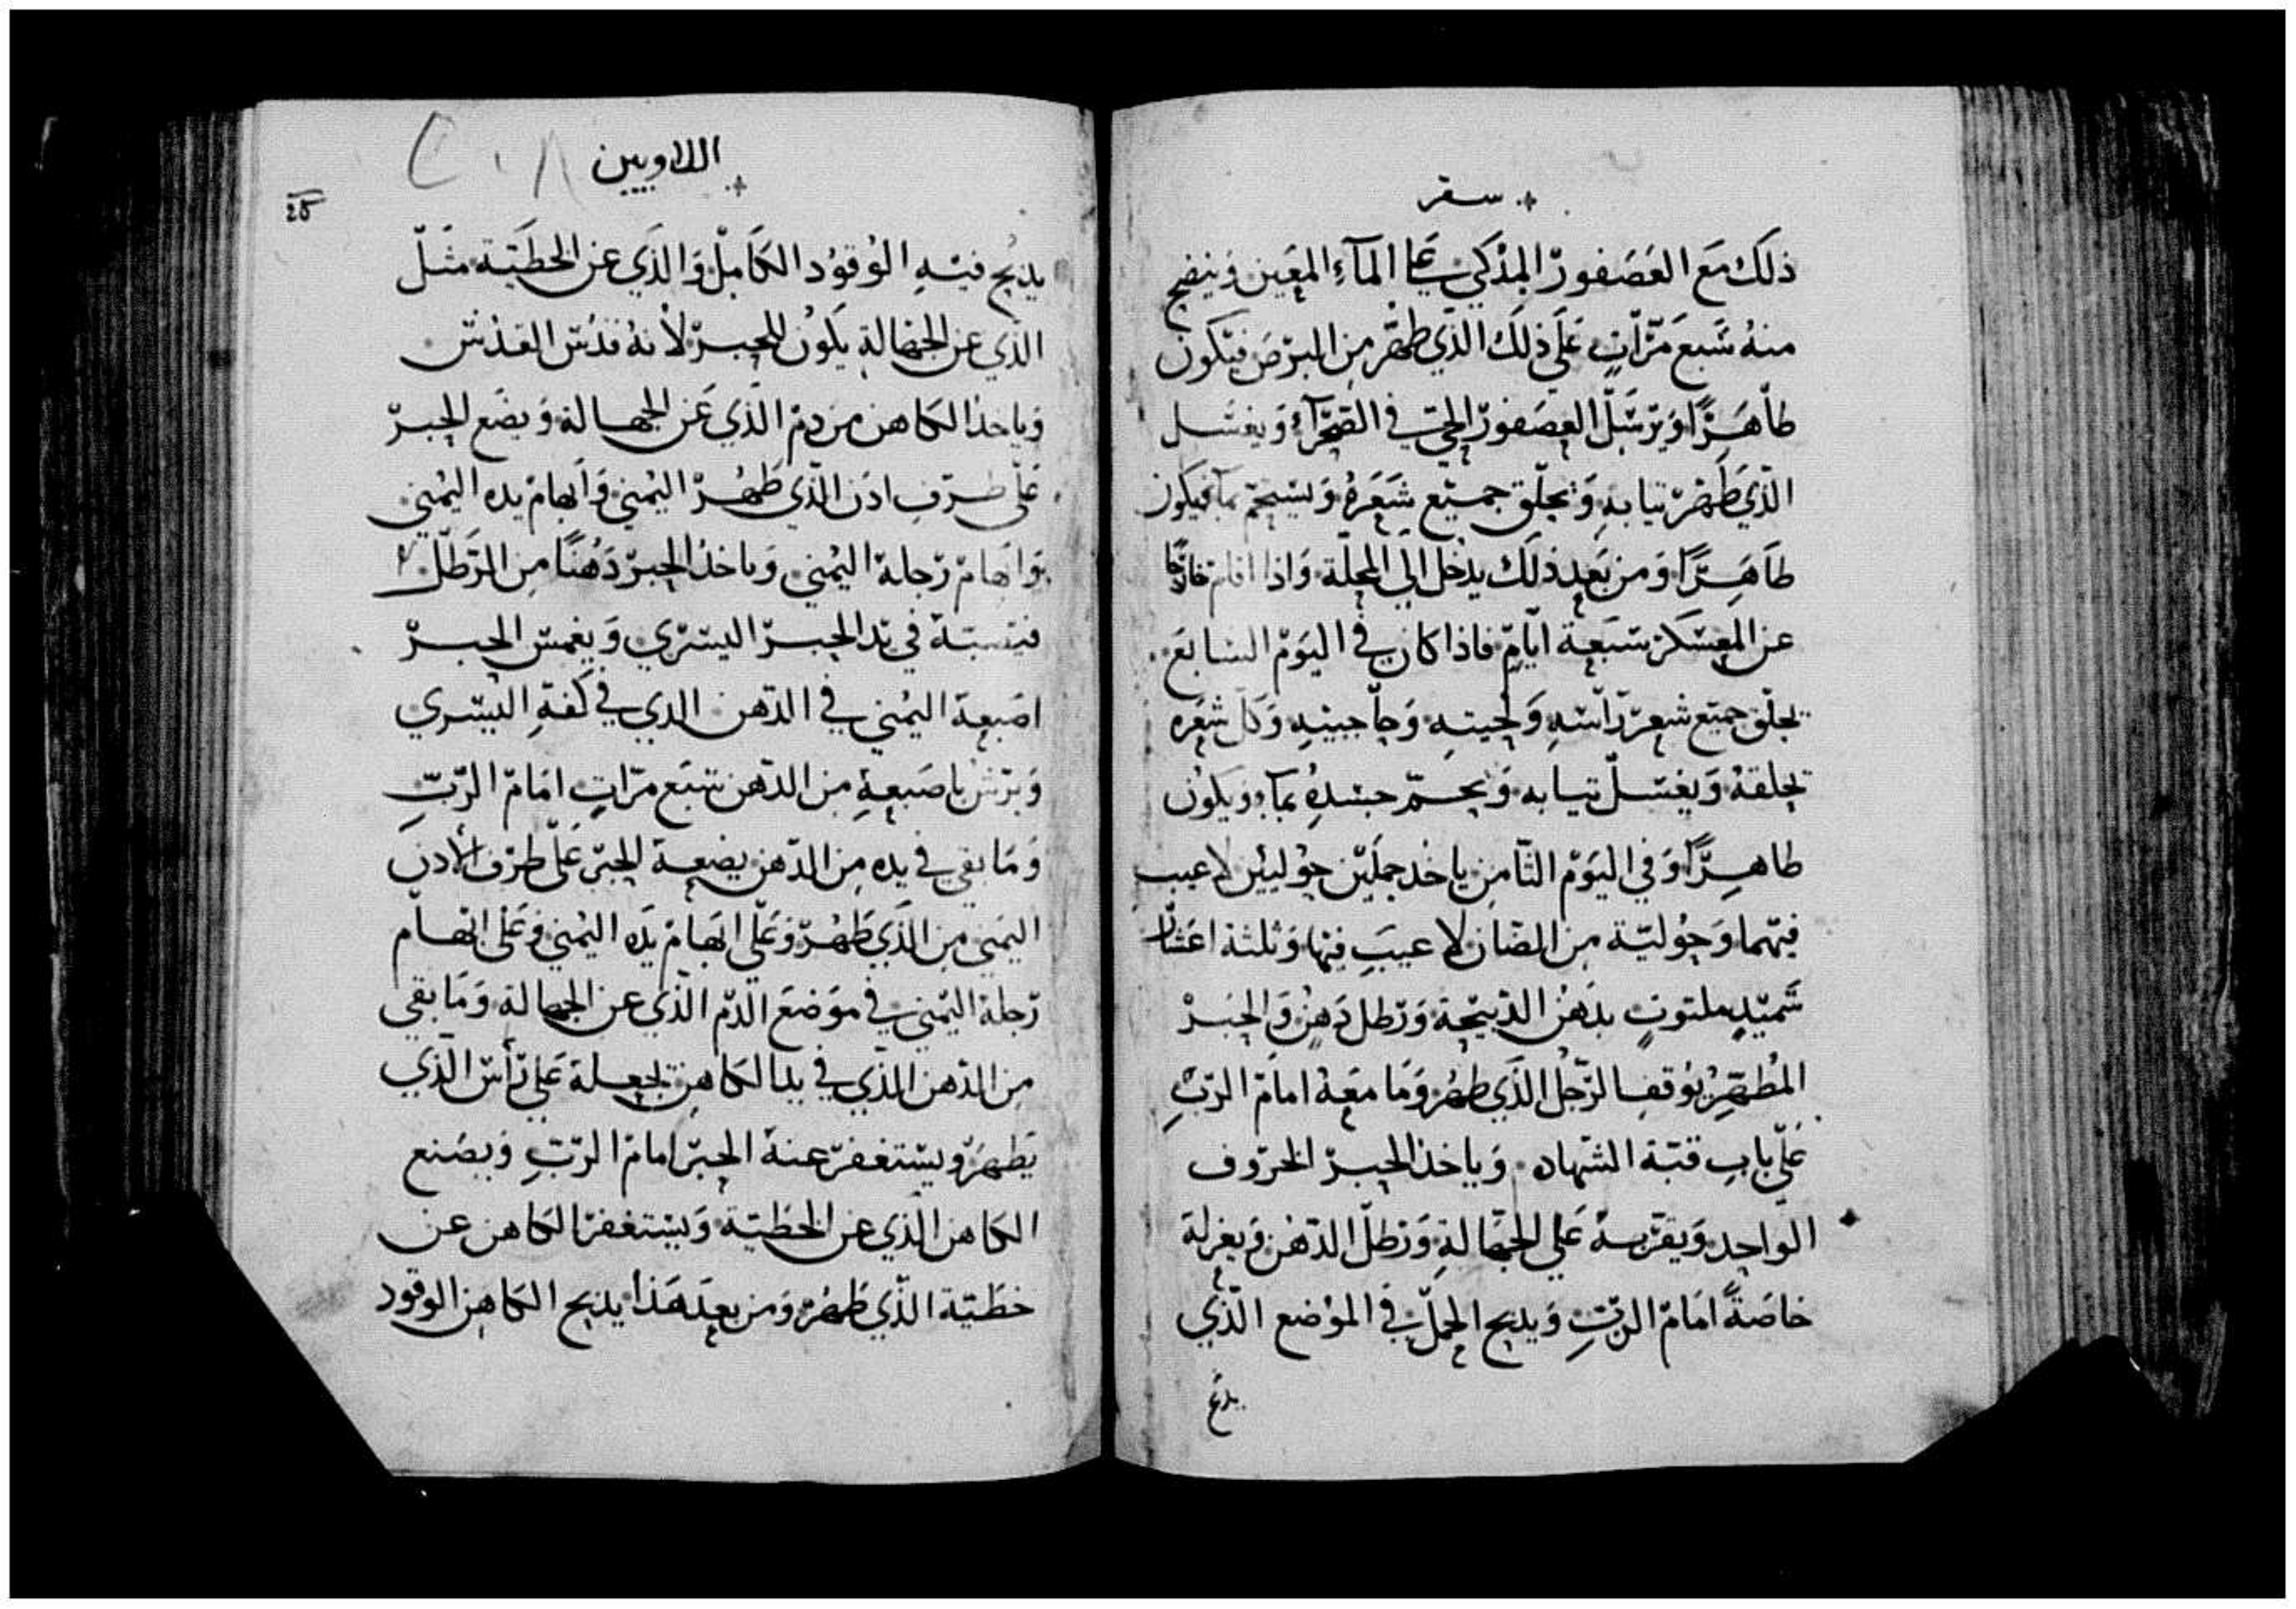 سفر
ذلك مع العصفور المذكي على المآء المعين وينضح
منه سبع مرّات على ذلك الذي طهر من البرص فيكون
طاهرًا ويرسل العصفور الحي في الصحرآء ويغسل
الذي طهر ثيابه ويحلق جميع شعره ويستحم بمآ فيكون
طاهرًا ومن بعد ذلك يدخل الي المحلة واذا اقام خارجًا
عن المعسكر سبعة ايام فاذا كان في اليوم السابع
يحلق جميع شعر راسه ولحيته وحاجبيه وكل شعره
يحلقه ويغسل ثيابه ويحم جسده بمآء ويكون
طاهرًا وفي اليوم الثامن ياخد حملين حوليين لا عيب
فيهما وحولية من الضان لا عيب فيها وثلثة اعشار
سميدٍ ملتوتٍ بدهن الدبيحة ورطل دهن والحبر
المُطهِرُ يوقف الرجل الذي طهر وما معه امام الربِ
على باب قبة الشهاده وياخذ الحبر الخروف
الواحد ويقربه على الجهالةِ ورطل الدهن ويعزله
خاصةً امام الربِ ويدبح الحمل في الموضع الذي
يدبح
اللاويين
٢٠٨
يدبح فيه الوقود الكامل والذي عن الخطية مثل
الذي عن الجهالة يكون للحبر لانه قدس القدس
وياخذ الكاهن من دم الذي عن الجهالة ويضع الحبر
على طرف ادن الذي طهر اليمني وابهام يده اليمني
وابهام رجله اليمني وياخذ الحبر دهنًا من الرطل
فيسبه في يد الحبر اليسري ويغمس الحبر
اصبعه اليمني في الدهن الدي في كفه اليسري
ويرش باصبعه من الدهن سبع مرات امام الربِ
وما بقي في يده من الدهن يضعه الحبر على طرف الأدن
اليمني من الذي طهر وعلى ابهام يده اليمني وعلى ابهام
رجله اليمني في موضع الدم الذي عن الجهالة وما بقي
من الدهن الذي في يد الكاهن يجعله على رأس الذي
يطهر ويستغفر عنه الحبر امام الربِ ويصنع
الكاهن الذي عن الخطية ويستغفر الكاهن عن
خطية الذي طهر ومن بعد هذا يذبح الكاهن الوقود